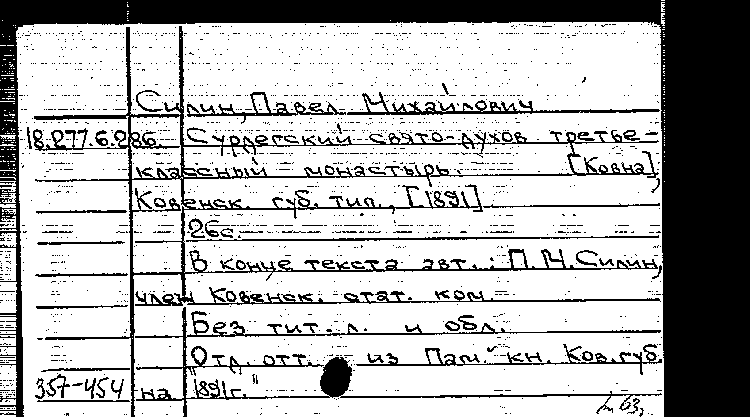 Силин, Павел Михайлович
18.277.6.286. Сурдегский свято-духов третье-
классный монастырь. [Ковна],
Ковенск. губ. тип., [1891]
26с.
В конце текста авт.: П.М.Силин,
член Ковенск. стат. ком.
Без тит. л. и обл.
"Отд. отт. из Пам. кн. Ков.губ.
357-454 на 1891г."
63